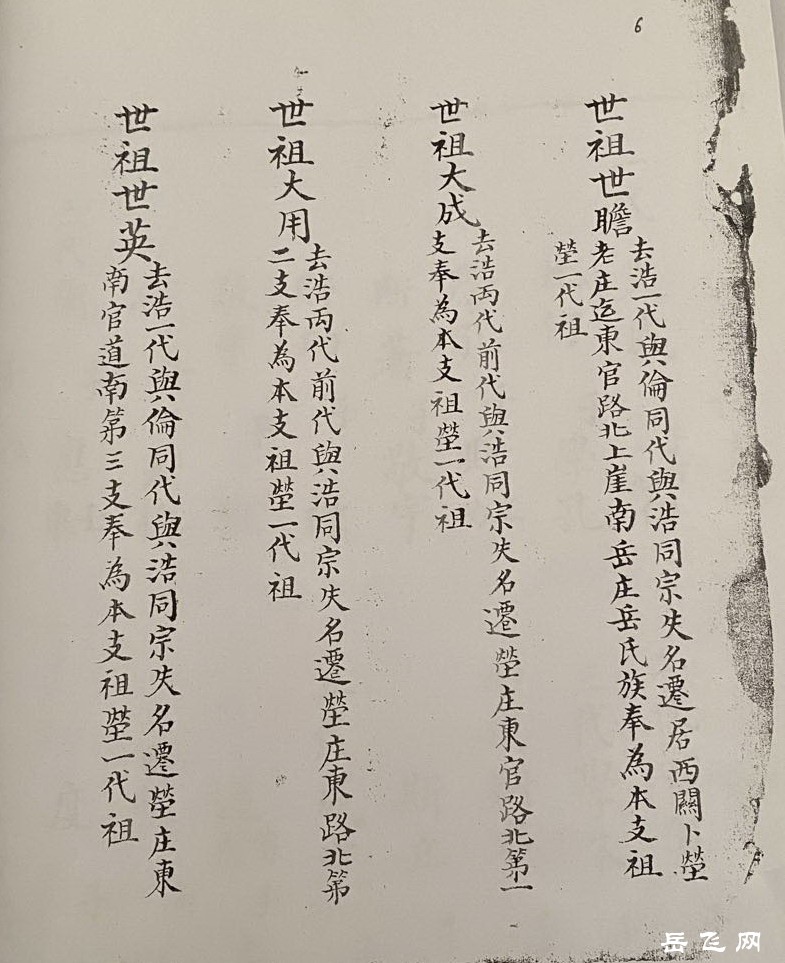 6
世祖世瞻
去浩一代與倫同代與浩同宗失名遷居西關卜塋
老庄迄東官路北上崖南岳庄岳氏族奉為本支祖
塋一代祖
世祖大成
去浩兩代前代與浩同宗失名遷塋庄東官路北第一
支奉為本支祖塋一代祖
世祖大用
去浩丙代前代與浩同宗失名遷塋庄東路北第
二支奉為本支祖塋一代祖
世祖世英
去浩一代與倫同代與浩同宗失名遷塋庄東
南官道南第三支奉為本支祖塋一代祖
岳飞网